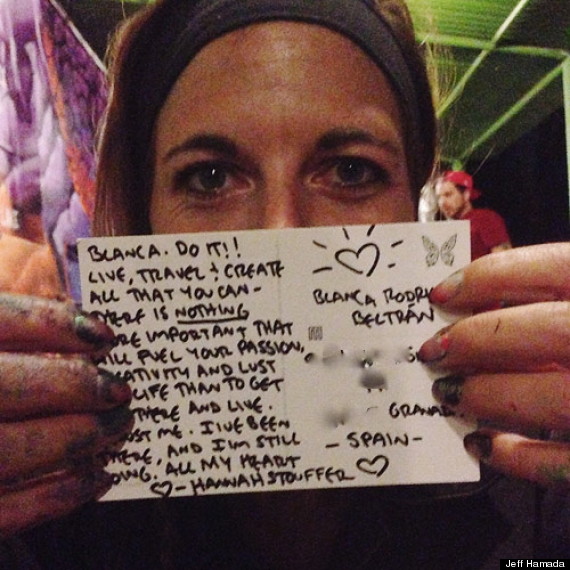 BLANCA. DO IT!!
LIVE, TRAVEL + CREATE
ALL THAT YOU CAN-
THERE IS NOTHING
IMPORTANT THAT
WILL FUEL YOUR PASSION,
AND LUST
LIFE THAN TO GET
THERE AND LIVE.
ME. I'VE BEEN
THERE, AND I'M STILL
ALL MY HEART
♡-HANNAH STOUFFER♡
BLANCA RODRI
BELTRÁN
GRANAD
-SPAIN-
Jeff Hamada